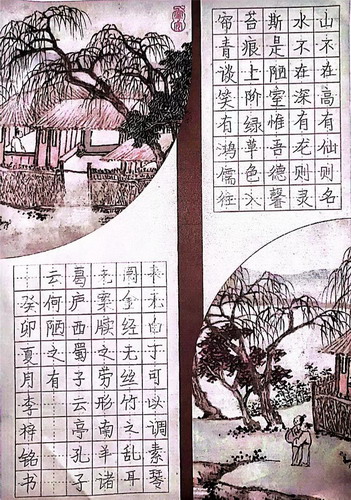 山不在高有仙则名
水不在深有龙则灵
斯是陋室惟吾德馨
苔痕上阶绿草色入
帘青谈笑有鸿儒往
来无白丁可以调素琴
阅金经无丝竹之乱耳
无案牍之劳形南羊诸
葛庐西蜀子云亭孔子
云何陋之有
癸卯夏月李梓铭书